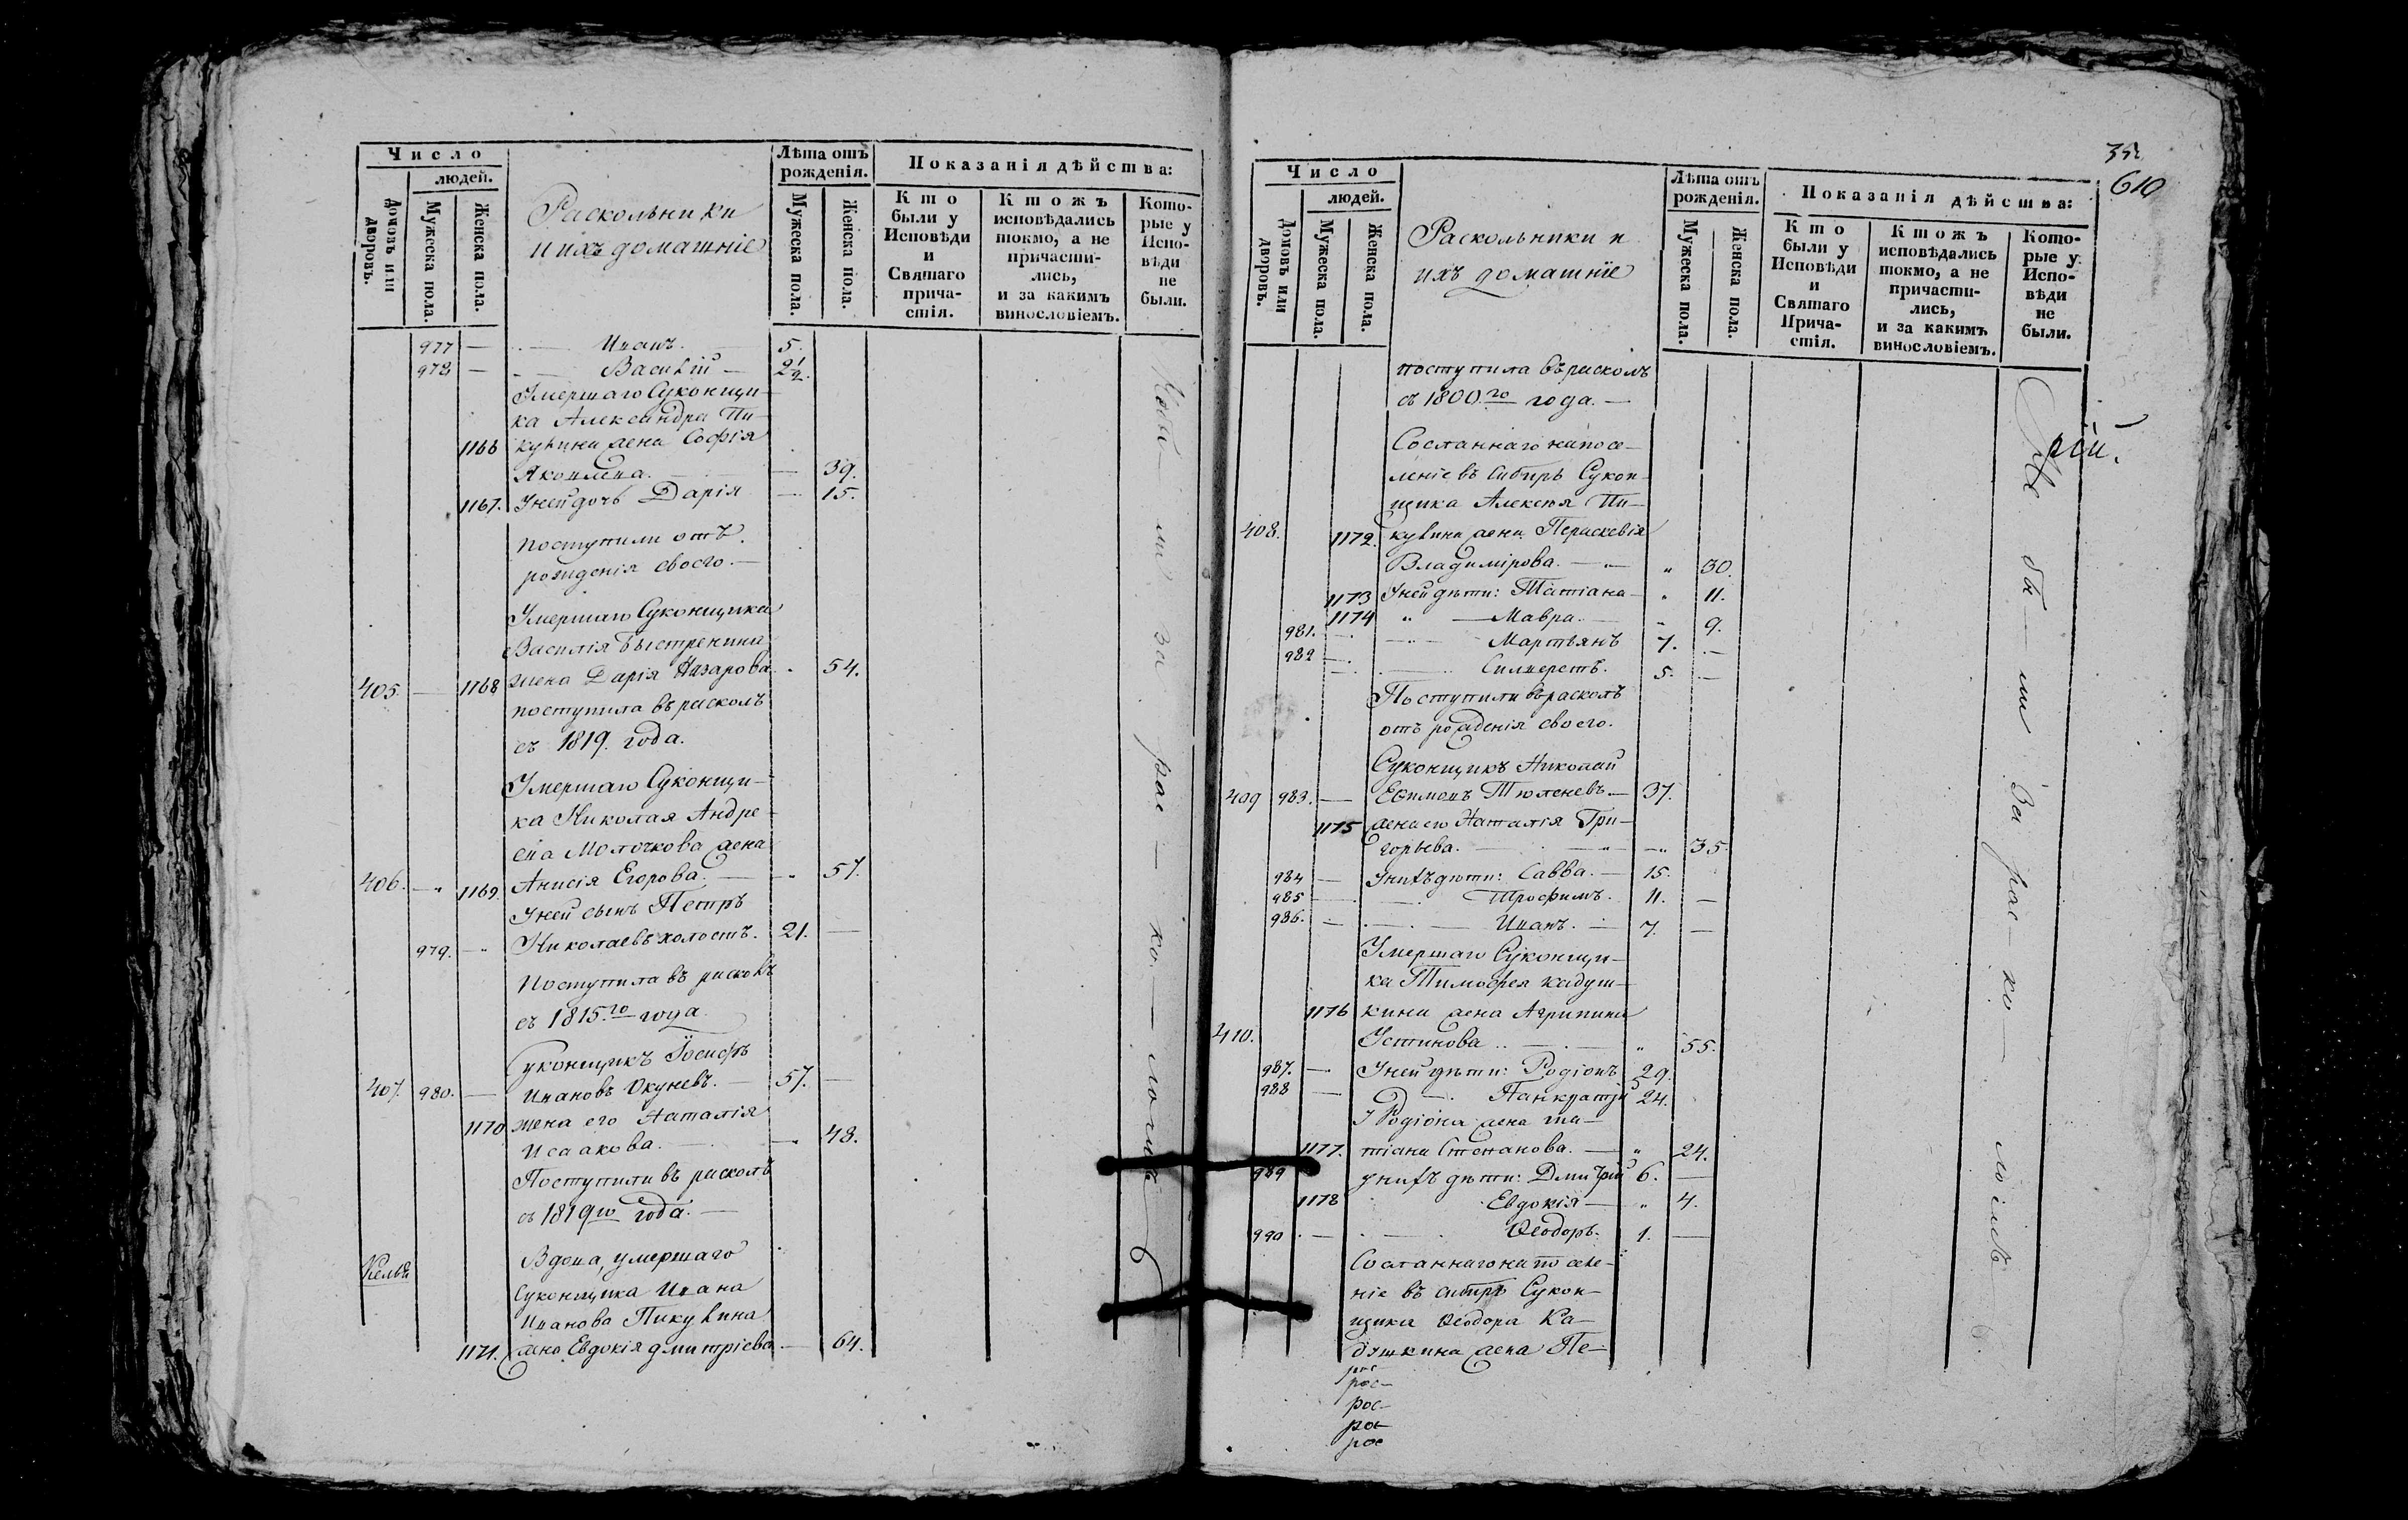 Число
людей.
Домовъ или дворовъ.
Мужеска пола.
Женска пола.
Раскольники
и ихъ домашніе
Лѣта отъ рожденія.
Мужеска пола.
Женска пола.
Показанія дѣйства:
Кто были у Исповѣди и Святаго причастія.
Ктожъ исповѣдались токмо, а не причастились, и за какимъ винословіемъ.
Которые у Исповѣди не были.
977 — Иванъ. 5.
978 — Василій — 2 1/2.
Умершаго Суконщи-
ка Александра Пи-
1166 кулина жена Софія
Яковлева. — 39.
1167. У ней дочь Дарія — 15.
поступили отъ
рожденія своего. —
Умершаго Суконщика
Василія Быстренина
405. — 1168 жена Дарія Назарова 54.
поступила въ расколъ
съ 1819. года.
Умершаго Суконщи-
ка Николая Андре-
ева Молочкова жена
406. — 1169. Анисія Егорова. — 57.
У ней сынъ Петръ
979. — Николаевъ холостъ. 21. —
Поступила въ расколъ
съ 1815.го года.
Суконщикъ Іосифъ
407. 980. — Ивановъ Окуневъ. — 57. —
1170 жена его Наталія
Исаакова. — 48.
Поступили въ расколъ
съ 1819го года. —
Вдова, умершаго
Келья
Суконщика Ивана
Иванова Пикулина
1171. жена Евдокія Дмитріева — 64.
ли за рас — ко — ломъ
610
Число
людей.
Домовъ или дворовъ.
Мужеска пола.
Женска пола.
Раскольники и
ихъ домашніе
Лѣта отъ рожденія.
Мужеска пола.
Женска пола.
Показанія дѣйства:
Кто были у Исповѣди и Святаго Причастія.
Ктожъ исповѣдались токмо, а не причастились, и за какимъ винословіемъ.
Которые у Исповѣди не были.
поступила въ расколъ
съ 1800.го года. —
Сосланнаго на посе-
леніе въ Сибирь Сукон-
щика Алексѣя Пи-
408. 1172. кулина жена Параскевія
Владимірова. — „ 30.
1173 У ней дѣти: Татіана — „ 11.
1174 „ — Мавра. — „ 9.
981. — Мартьянъ 7. —
982 — Силверстъ. 5. —
Поступили въ расколъ
отъ рожденія своего.
Суконщикъ Николай
409 983. — Ефимовъ Тюленевъ. — 37.
1175 жена его Наталія Гри-
горьева. — „ 35.
984 — У нихъ дѣти: Савва. — 15.
985 — Трофимъ. 11. —
986. — Иванъ. — 7. —
Умершаго Суконщи-
ка Тимофея Кадуш-
1176 кина жена Агрипина
410. Устинова — „ 55.
987. — У ней дѣти: Родіонъ 29.
988 — Панкратій 24.
У Родіона жена Та-
1177. тіана Степанова. — „ 24.
989 у нихъ дѣти: Дмитрій 6. —
1178 Евдокія — „ 4.
990 — Ѳеодоръ. 1. —
Сосланнаго на после-
ніе въ Сибирь Сукон-
щика Ѳеодора Ка-
душкина жена Пе-
рос-
рос-
рос
рос
Не бы — ли за рас — ко — ломъ
рій.